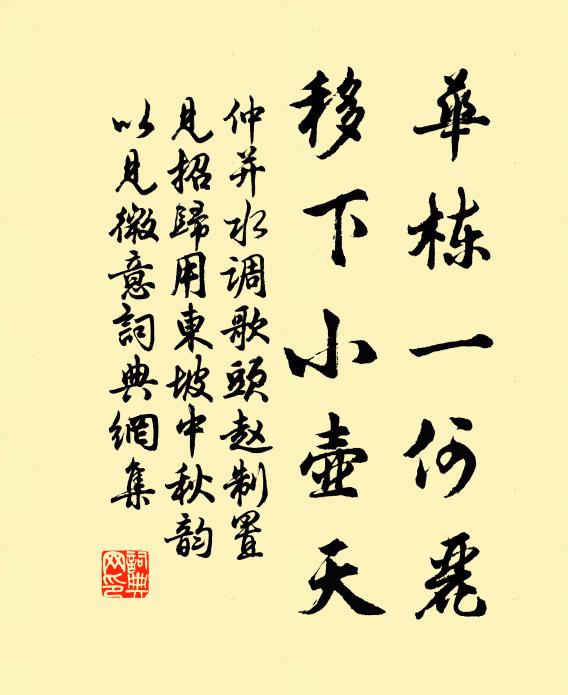 華栋一何麗
移下小壺天
仲并水调歌頭赵制置
見招歸用東坡中秋韵
以見微意詞典網集
詞典网印